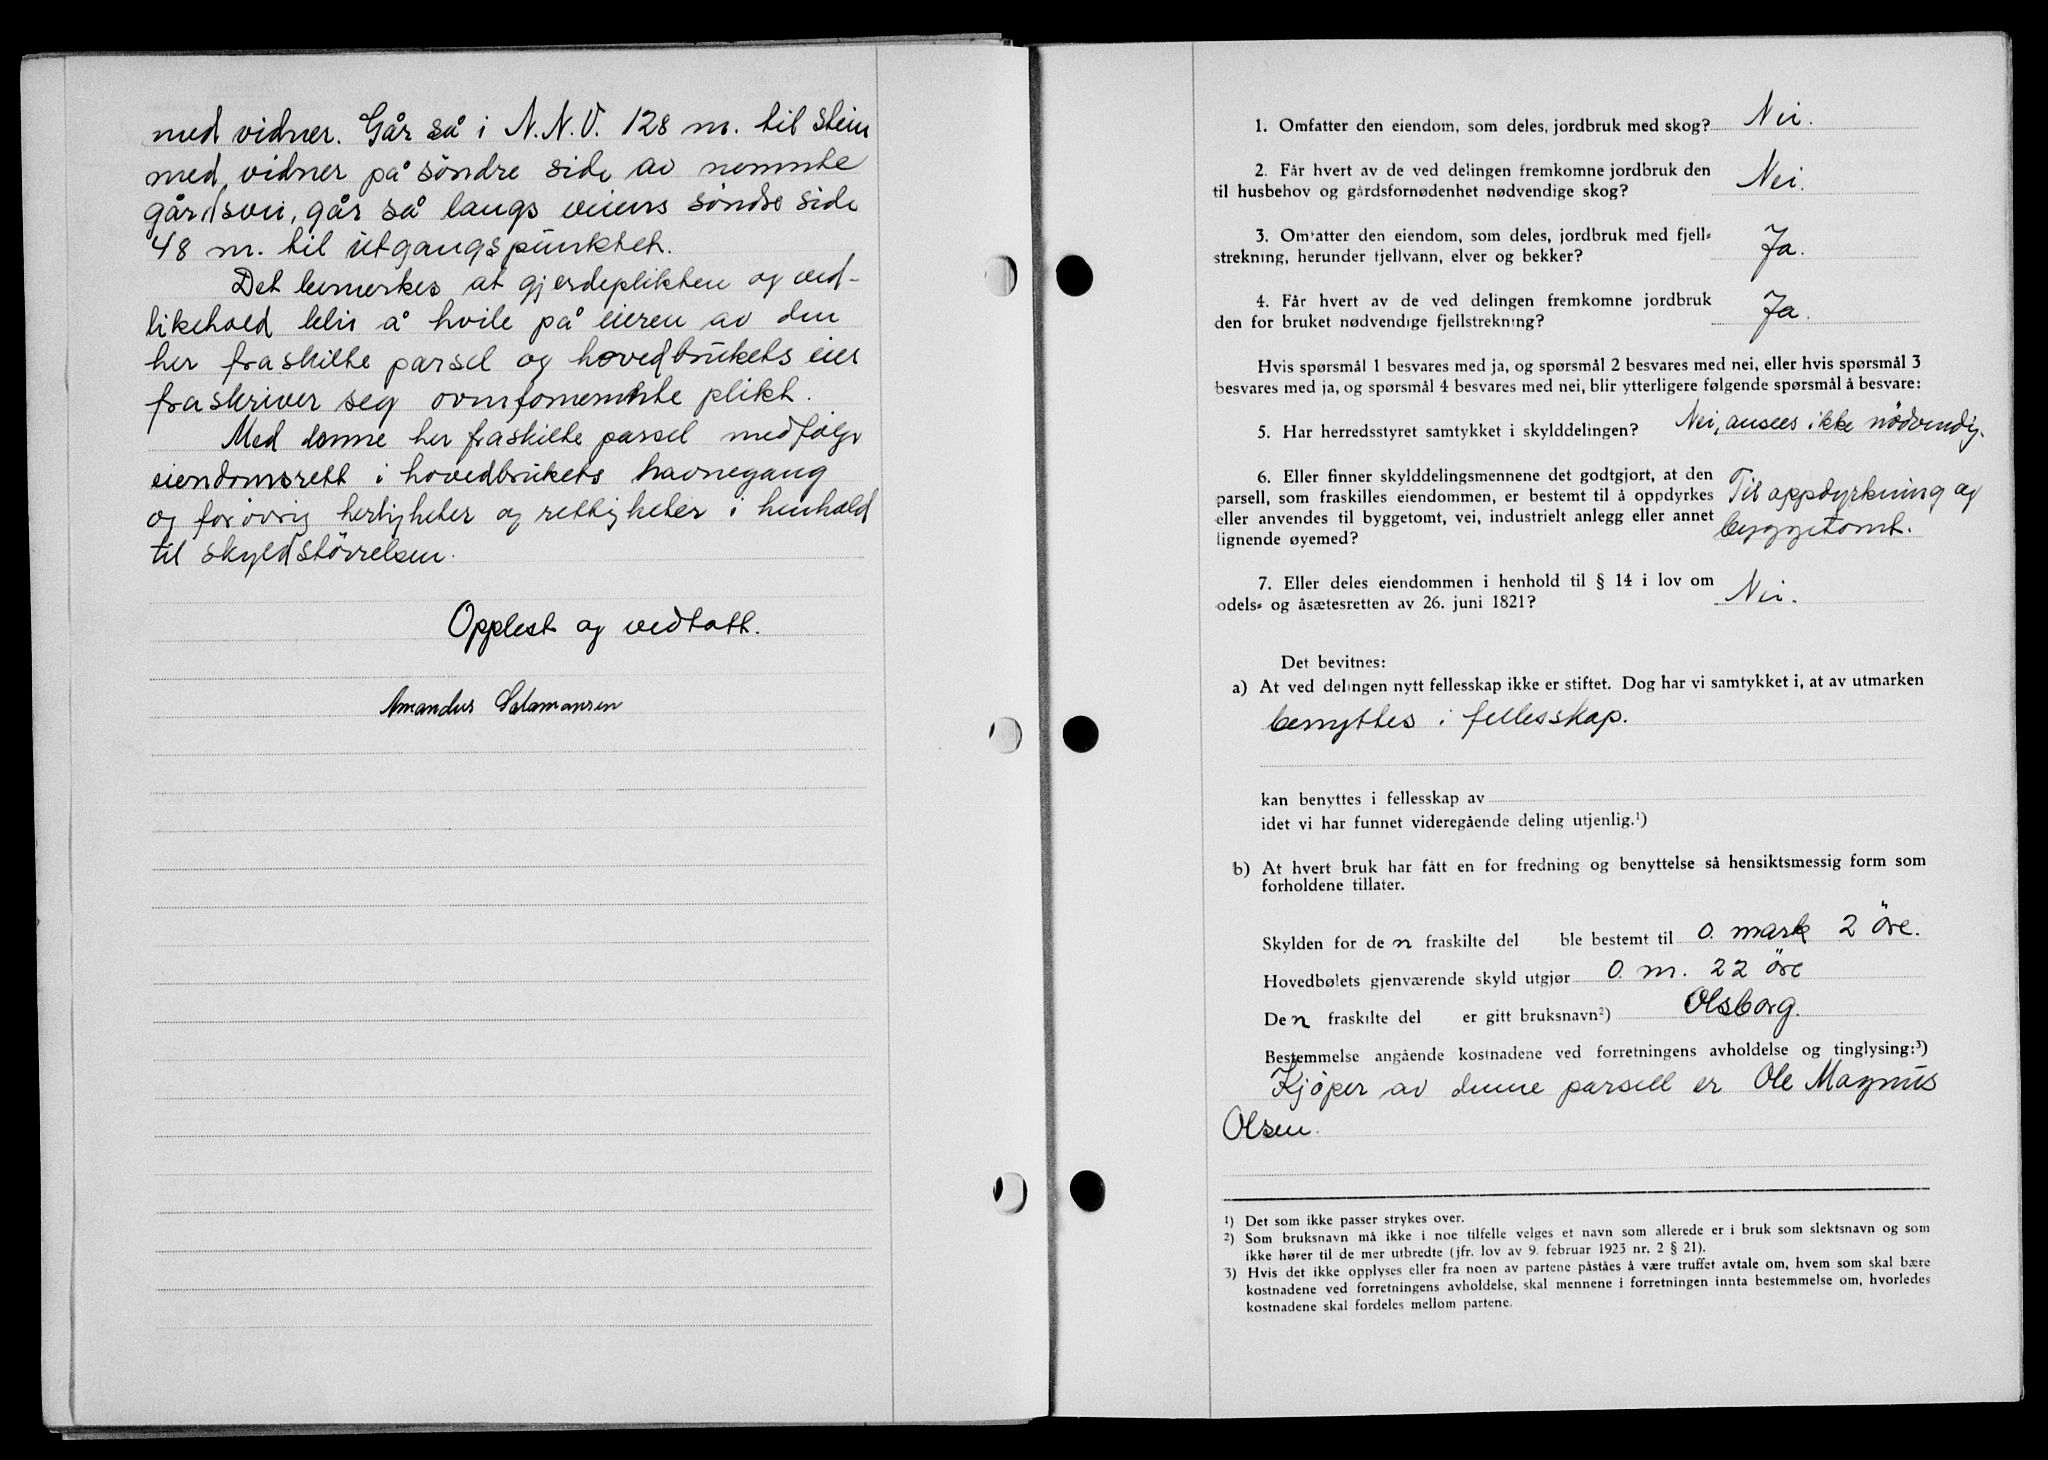 med vidner. Går så i N.N.V. 128 m. til stein
med vidner på söndre side av nemnte
gårdsvei, går så langs veiens söndre side
48 m. til utgangspunktet.
Det bemerkes at gjerdeplikten og ved-
likehold blir å hvile på eieren av den
her fraskilte parsel og hovedbrukets eier
fraskriver seg ovenfornemnte plikt.
Med denne her fraskilte parsel medfölger
eiendomsrett i hovedbrukets havnegang
og forövrig herligheter og rettigheter i henhold
til skyldstörrelsen.
Opplest og vedtatt.
Amandus Salamonsen
1. Omfatter den eiendom, som deles, jordbruk med skog? Nei.
2. Får hvert av de ved delingen fremkomne jordbruk den
til husbehov og gårdsfornødenhet nødvendige skog? Nei.
3. Omfatter den eiendom, som deles, jordbruk med fjell-
strekning, herunder fjellvann, elver og bekker? Ja.
4. Får hvert av de ved delingen fremkomne jordbruk
den for bruket nødvendige fjellstrekning? Ja.
Hvis spørsmål 1 besvares med ja, og spørsmål 2 besvares med nei, eller hvis spørsmål 3
besvares med ja, og spørsmål 4 besvares med nei, blir ytterligere følgende spørsmål å besvare:
5. Har herredsstyret samtykket i skylddelingen? Nei, ansees ikke nödvendig.
6. Eller finner skylddelingsmennene det godtgjort, at den
parsell, som fraskilles eiendommen, er bestemt til å oppdyrkes
eller anvendes til byggetomt, vei, industrielt anlegg eller annet
lignende øyemed? Til oppdyrkning og
byggetomt.
7. Eller deles eiendommen i henhold til § 14 i lov om
odels- og åsætesretten av 26. juni 1821? Nei.
Det bevitnes:
a) At ved delingen nytt fellesskap ikke er stiftet. Dog har vi samtykket i, at av utmarken
benyttes i fellesskap.
kan benyttes i fellesskap av
idet vi har funnet videregående deling utjenlig.¹)
b) At hvert bruk har fått en for fredning og benyttelse så hensiktsmessig form som
forholdene tillater.
Skylden for den fraskilte del ble bestemt til 0. mark 2 öre.
Hovedbølets gjenværende skyld utgjør 0. m. 22 öre
Den fraskilte del er gitt bruksnavn²) Olsborg.
Bestemmelse angående kostnadene ved forretningens avholdelse og tinglysing:³)
Kjöper av denne parsell er Ole Magnus
Olsen.
¹) Det som ikke passer strykes over.
²) Som bruksnavn må ikke i noe tilfelle velges et navn som allerede er i bruk som slektsnavn og som
ikke hører til de mer utbredte (jfr. lov av 9. februar 1923 nr. 2 § 21).
³) Hvis det ikke opplyses eller fra noen av partene påståes å være truffet avtale om, hvem som skal bære
kostnadene ved forretningens avholdelse, skal mennene i forretningen innta bestemmelse om, hvorledes
kostnadene skal fordeles mellom partene.